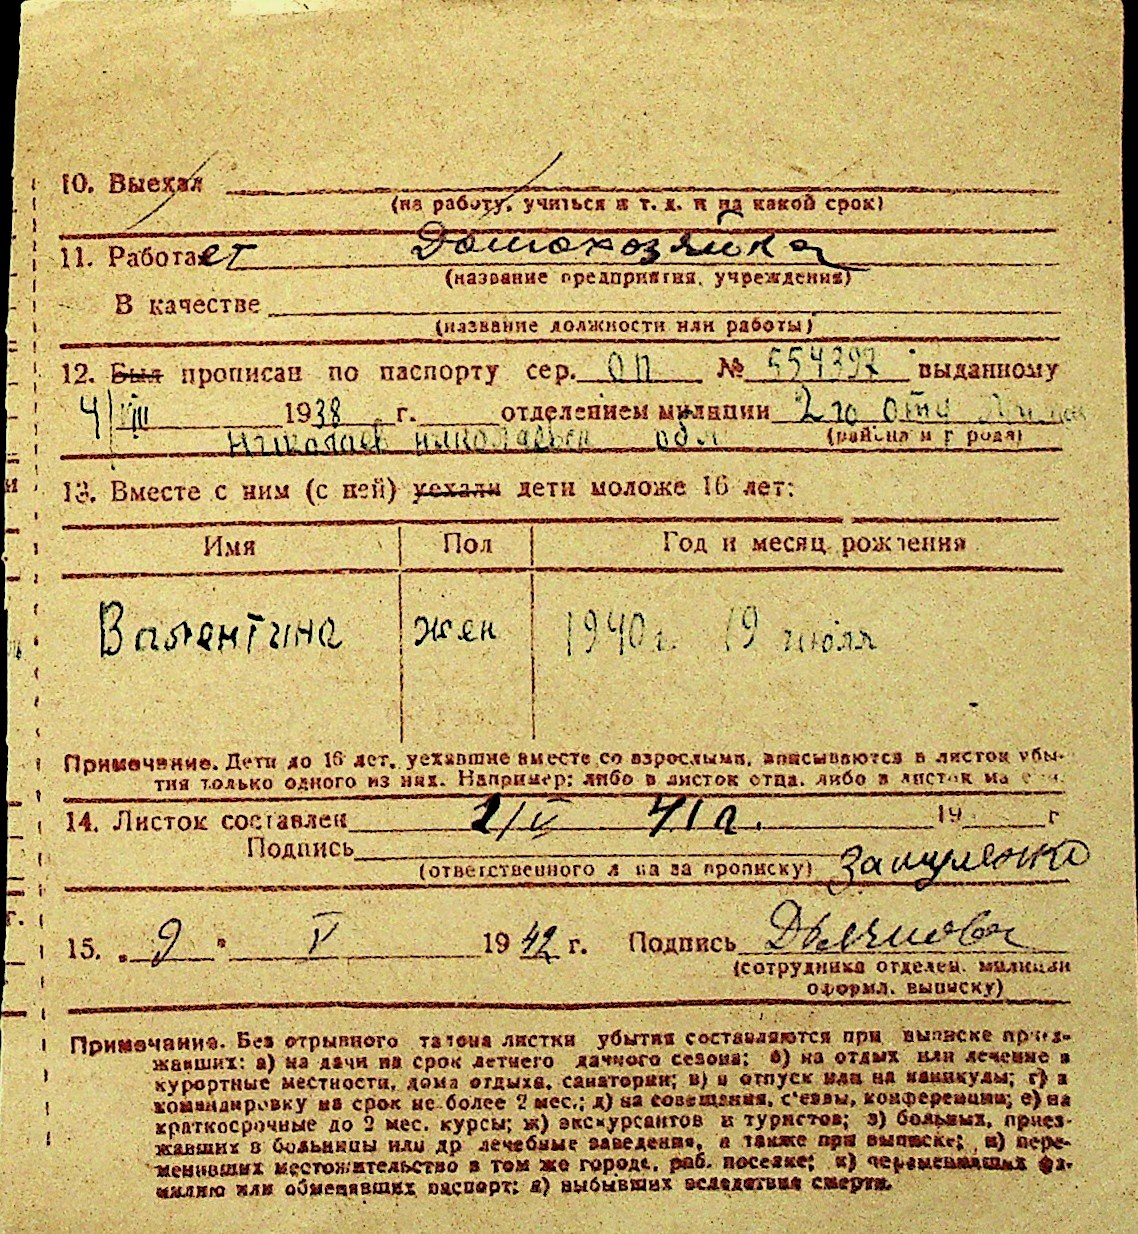 10. Выехал
(на работу, учиться и т. д. и на какой срок)
11. Работает Домохозяйка
(название предприятия, учреждения)
В качестве
(название должности или работы)
12. Был прописан по паспорту сер. ОП № 554397 выданному
4/VIII 1938 г. отделением милиции 2го отд
Николаев николаевск обл (района и города)
13. Вместе с ним (с ней) уехали дети моложе 16 лет:
Имя Пол Год и месяц рождения
Валентина жен 1940 г. 19 июля
Примечание. Дети до 16 лет, уехавшие вместе со взрослыми, вписываются в листок убы-
тия только одного из них. Например: либо в листок отца, либо в листок матери.
14. Листок составлен 2/V 41 г. 19 г
Подпись
(ответственного лица за прописку)
15. „9" V 1942 г. Подпись
(сотрудника отделен. милиции
оформл. выписку)
Примечание. Без отрывного талона листки убытия составляются при выписке приез-
жавших: а) на дачи на срок летнего дачного сезона; б) на отдых или лечение в
курортные местности, дома отдыха, санатории; в) в отпуск или на каникулы; г) в
командировку на срок не более 2 мес.; д) на совещания, с'езды, конференции; е) на
краткосрочные до 2 мес. курсы; ж) экскурсантов и туристов; з) больных, приез-
жавших в больницы или др лечебные заведения, а также при выписке; и) пере-
менивших местожительство в том же городе, раб. поселке; к) переменивших фа-
милию или обменявших паспорт; л) выбывших вследствие смерти.